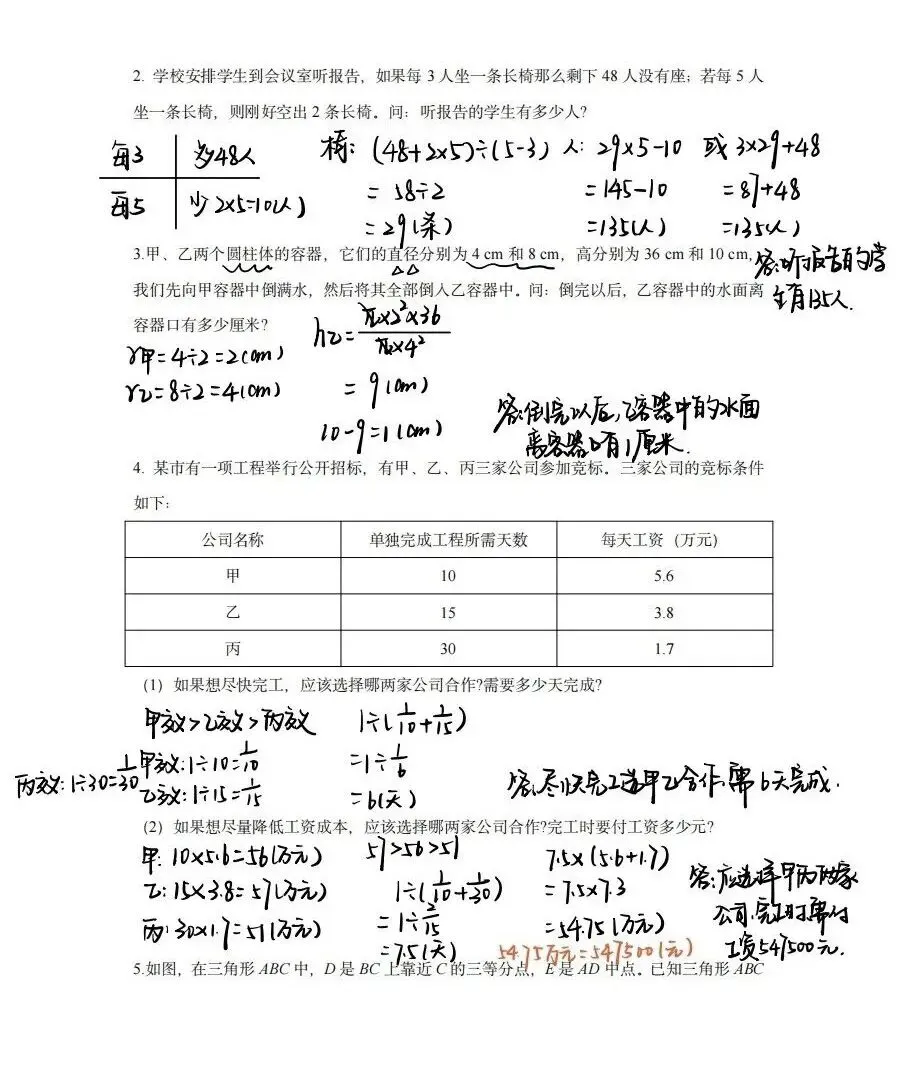 2. 学校安排学生到会议室听报告，如果每 3 人坐一条长椅那么剩下 48 人没有座；若每 5 人
坐一条长椅，则刚好空出 2 条长椅。问：听报告的学生有多少人？
每3 多48人
每5 少2×5=10(人)
椅: (48+2×5)÷(5-3)
=58÷2
=29(条)
人: 29×5-10
=145-10
=135(人)
或 3×29+48
=87+48
=135(人)
答:听报告的学
生有135人.
3.甲、乙两个圆柱体的容器，它们的直径分别为 4 cm 和 8 cm，高分别为 36 cm 和 10 cm，
我们先向甲容器中倒满水，然后将其全部倒入乙容器中。问：倒完以后，乙容器中的水面离
容器口有多少厘米？
r甲=4÷2=2(cm)
r乙=8÷2=4(cm)
h乙=π×2²×36/π×4²
=9(cm)
10-9=1(cm)
答:倒完以后,乙容器中的水面
离容器口有1厘米.
4. 某市有一项工程举行公开招标，有甲、乙、丙三家公司参加竞标。三家公司的竞标条件
如下：
公司名称 单独完成工程所需天数 每天工资（万元）
甲 10 5.6
乙 15 3.8
丙 30 1.7
（1）如果想尽快完工，应该选择哪两家公司合作?需要多少天完成?
甲效>乙效>丙效
甲效:1÷10=1/10
乙效:1÷15=1/15
丙效:1÷30=1/30
1÷(1/10+1/15)
=1÷1/6
=6(天)
答:尽快完工选甲乙合作,需6天完成.
（2）如果想尽量降低工资成本，应该选择哪两家公司合作?完工时要付工资多少元?
甲: 10×5.6=56(万元)
乙:15×3.8=57(万元)
丙:30×1.7=51(万元)
57>56>51
1÷(1/10+1/30)
=1÷2/15
=7.5(天)
7.5×(5.6+1.7)
=7.5×7.3
=54.75(万元)
54.75万元=547500(元)
答:应选择甲丙两家
公司,完工时需付
工资547500元.
5.如图，在三角形 ABC 中，D 是 BC 上靠近 C 的三等分点，E 是 AD 中点。已知三角形 ABC